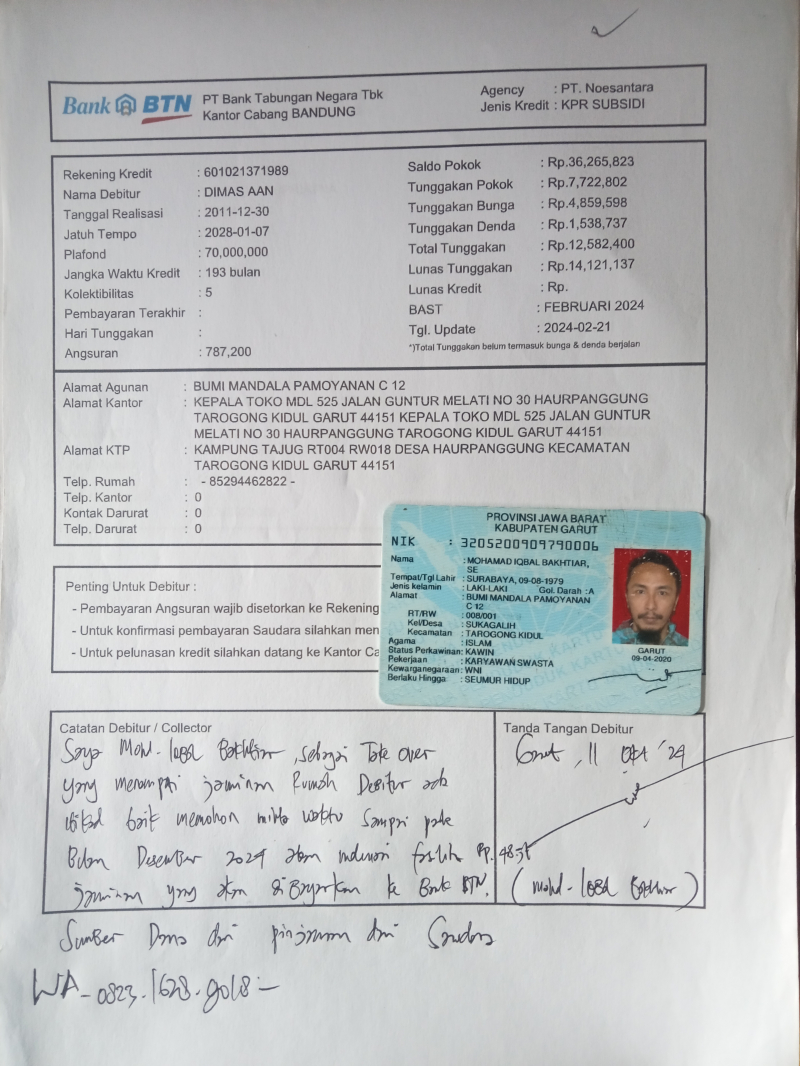 Bank BTN
PT Bank Tabungan Negara Tbk
Kantor Cabang BANDUNG
Agency : PT. Noesantara
Jenis Kredit : KPR SUBSIDI
Rekening Kredit : 601021371989
Nama Debitur : DIMAS AAN
Tanggal Realisasi : 2011-12-30
Jatuh Tempo : 2028-01-07
Plafond : 70,000,000
Jangka Waktu Kredit : 193 bulan
Kolektibilitas : 5
Pembayaran Terakhir :
Hari Tunggakan :
Angsuran : 787,200
Saldo Pokok : Rp.36,265,823
Tunggakan Pokok : Rp.7,722,802
Tunggakan Bunga : Rp.4,859,598
Tunggakan Denda : Rp.1,538,737
Total Tunggakan : Rp.12,582,400
Lunas Tunggakan : Rp.14,121,137
Lunas Kredit : Rp.
BAST : FEBRUARI 2024
Tgl. Update : 2024-02-21
*)Total Tunggakan belum termasuk bunga & denda berjalan
Alamat Agunan : BUMI MANDALA PAMOYANAN C 12
Alamat Kantor : KEPALA TOKO MDL 525 JALAN GUNTUR MELATI NO 30 HAURPANGGUNG
TAROGONG KIDUL GARUT 44151 KEPALA TOKO MDL 525 JALAN GUNTUR
MELATI NO 30 HAURPANGGUNG TAROGONG KIDUL GARUT 44151
Alamat KTP : KAMPUNG TAJUG RT004 RW018 DESA HAURPANGGUNG KECAMATAN
TAROGONG KIDUL GARUT 44151
Telp. Rumah : - 85294462822 -
Telp. Kantor : 0
Kontak Darurat : 0
Telp. Darurat : 0
Penting Untuk Debitur :
- Pembayaran Angsuran wajib disetorkan ke Rekening
- Untuk konfirmasi pembayaran Saudara silahkan men
- Untuk pelunasan kredit silahkan datang ke Kantor Ca
PROVINSI JAWA BARAT
KABUPATEN GARUT
NIK : 3205200909790006
Nama : MOHAMAD IQBAL BAKHTIAR,
SE
Tempat/Tgl Lahir : SURABAYA, 09-08-1979
Jenis kelamin : LAKI-LAKI Gol. Darah : A
Alamat : BUMI MANDALA PAMOYANAN
C 12
RT/RW : 008/001
Kel/Desa : SUKAGALIH
Kecamatan : TAROGONG KIDUL
Agama : ISLAM
Status Perkawinan: KAWIN
Pekerjaan : KARYAWAN SWASTA
Kewarganegaraan: WNI
Berlaku Hingga : SEUMUR HIDUP
GARUT
09-04-2020
Catatan Debitur / Collector
Saya Mohd. Iqbal Bakhtiar, sebagai Take over
yang menempati jaminan Rumah Debitur ada
itikad baik memohon minta waktu sampai pada
Bulan Desember 2024 akan melunasi Rp. 48.5
jaminan yang akan diBayarkan ke Bank BTN.
Sumber Dana dari pinjaman dari Saudara
WA - 0823.1628.9018 -
Tanda Tangan Debitur
Garut, 11 Okt '24
(Mohd. Iqbal Bakhtiar)